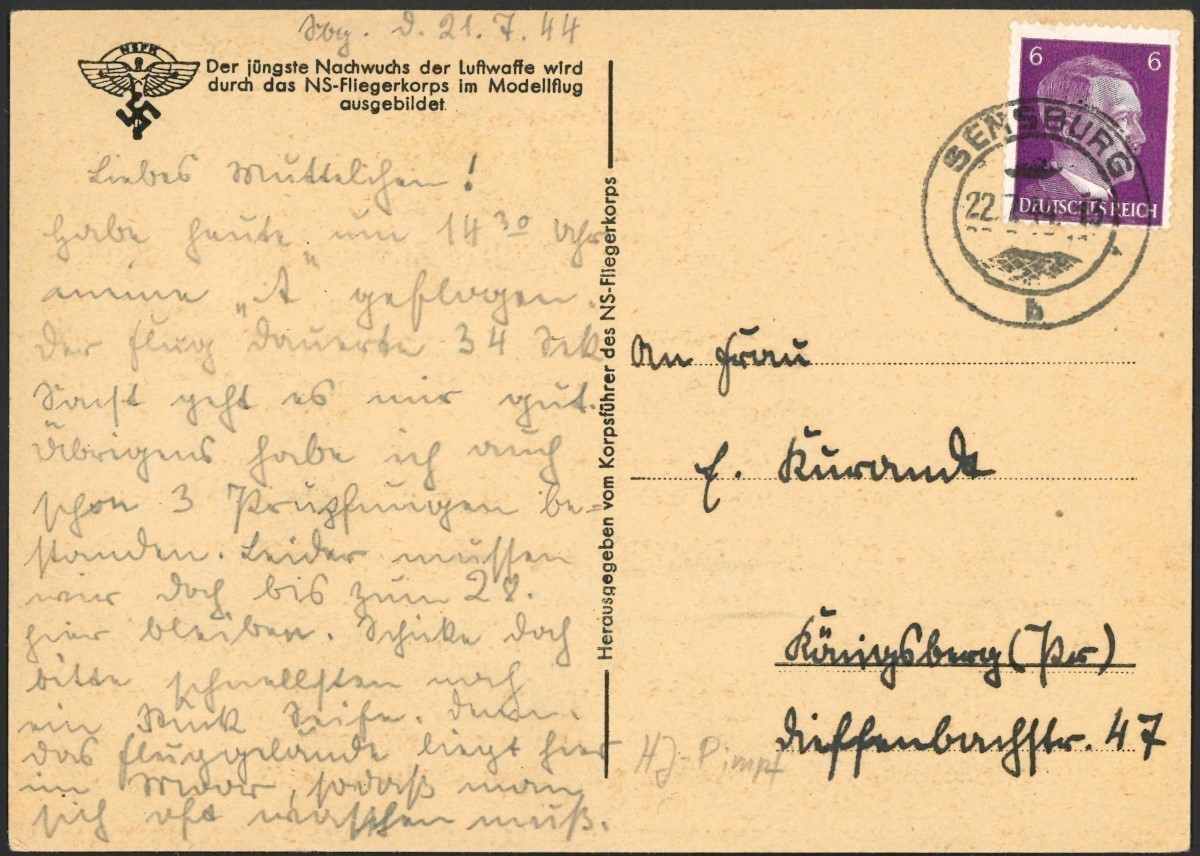 Sbg. d. 21.7.44
NSFK
Der jüngste Nachwuchs der Luftwaffe wird
durch das NS-Fliegerkorps im Modellflug
ausgebildet.
Liebes Muttelchen!
Habe heute um 14³⁰ Uhr
meine „A" geflogen.
Der Flug dauerte 34 Sek
Sonst geht es mir gut.
Übrigens habe ich auch
schon 3 Prüfungen be=
standen. Leider müssen
wir doch bis zum 28.
hier bleiben. Schicke doch
bitte schnellsten noch
ein Stück Seife. Denn
das Fluggelände liegt hier
im Moor, sodaß man
sich oft waschen muß.
Herausgegeben vom Korpsführer des NS-Fliegerkorps
6 6
DEUTSCHES REICH
SENSBURG
22.7.44. 15
b
An Frau
E. Kurandt
Königsberg (Pr)
Dieffenbachstr. 47
HJ-Pimpf